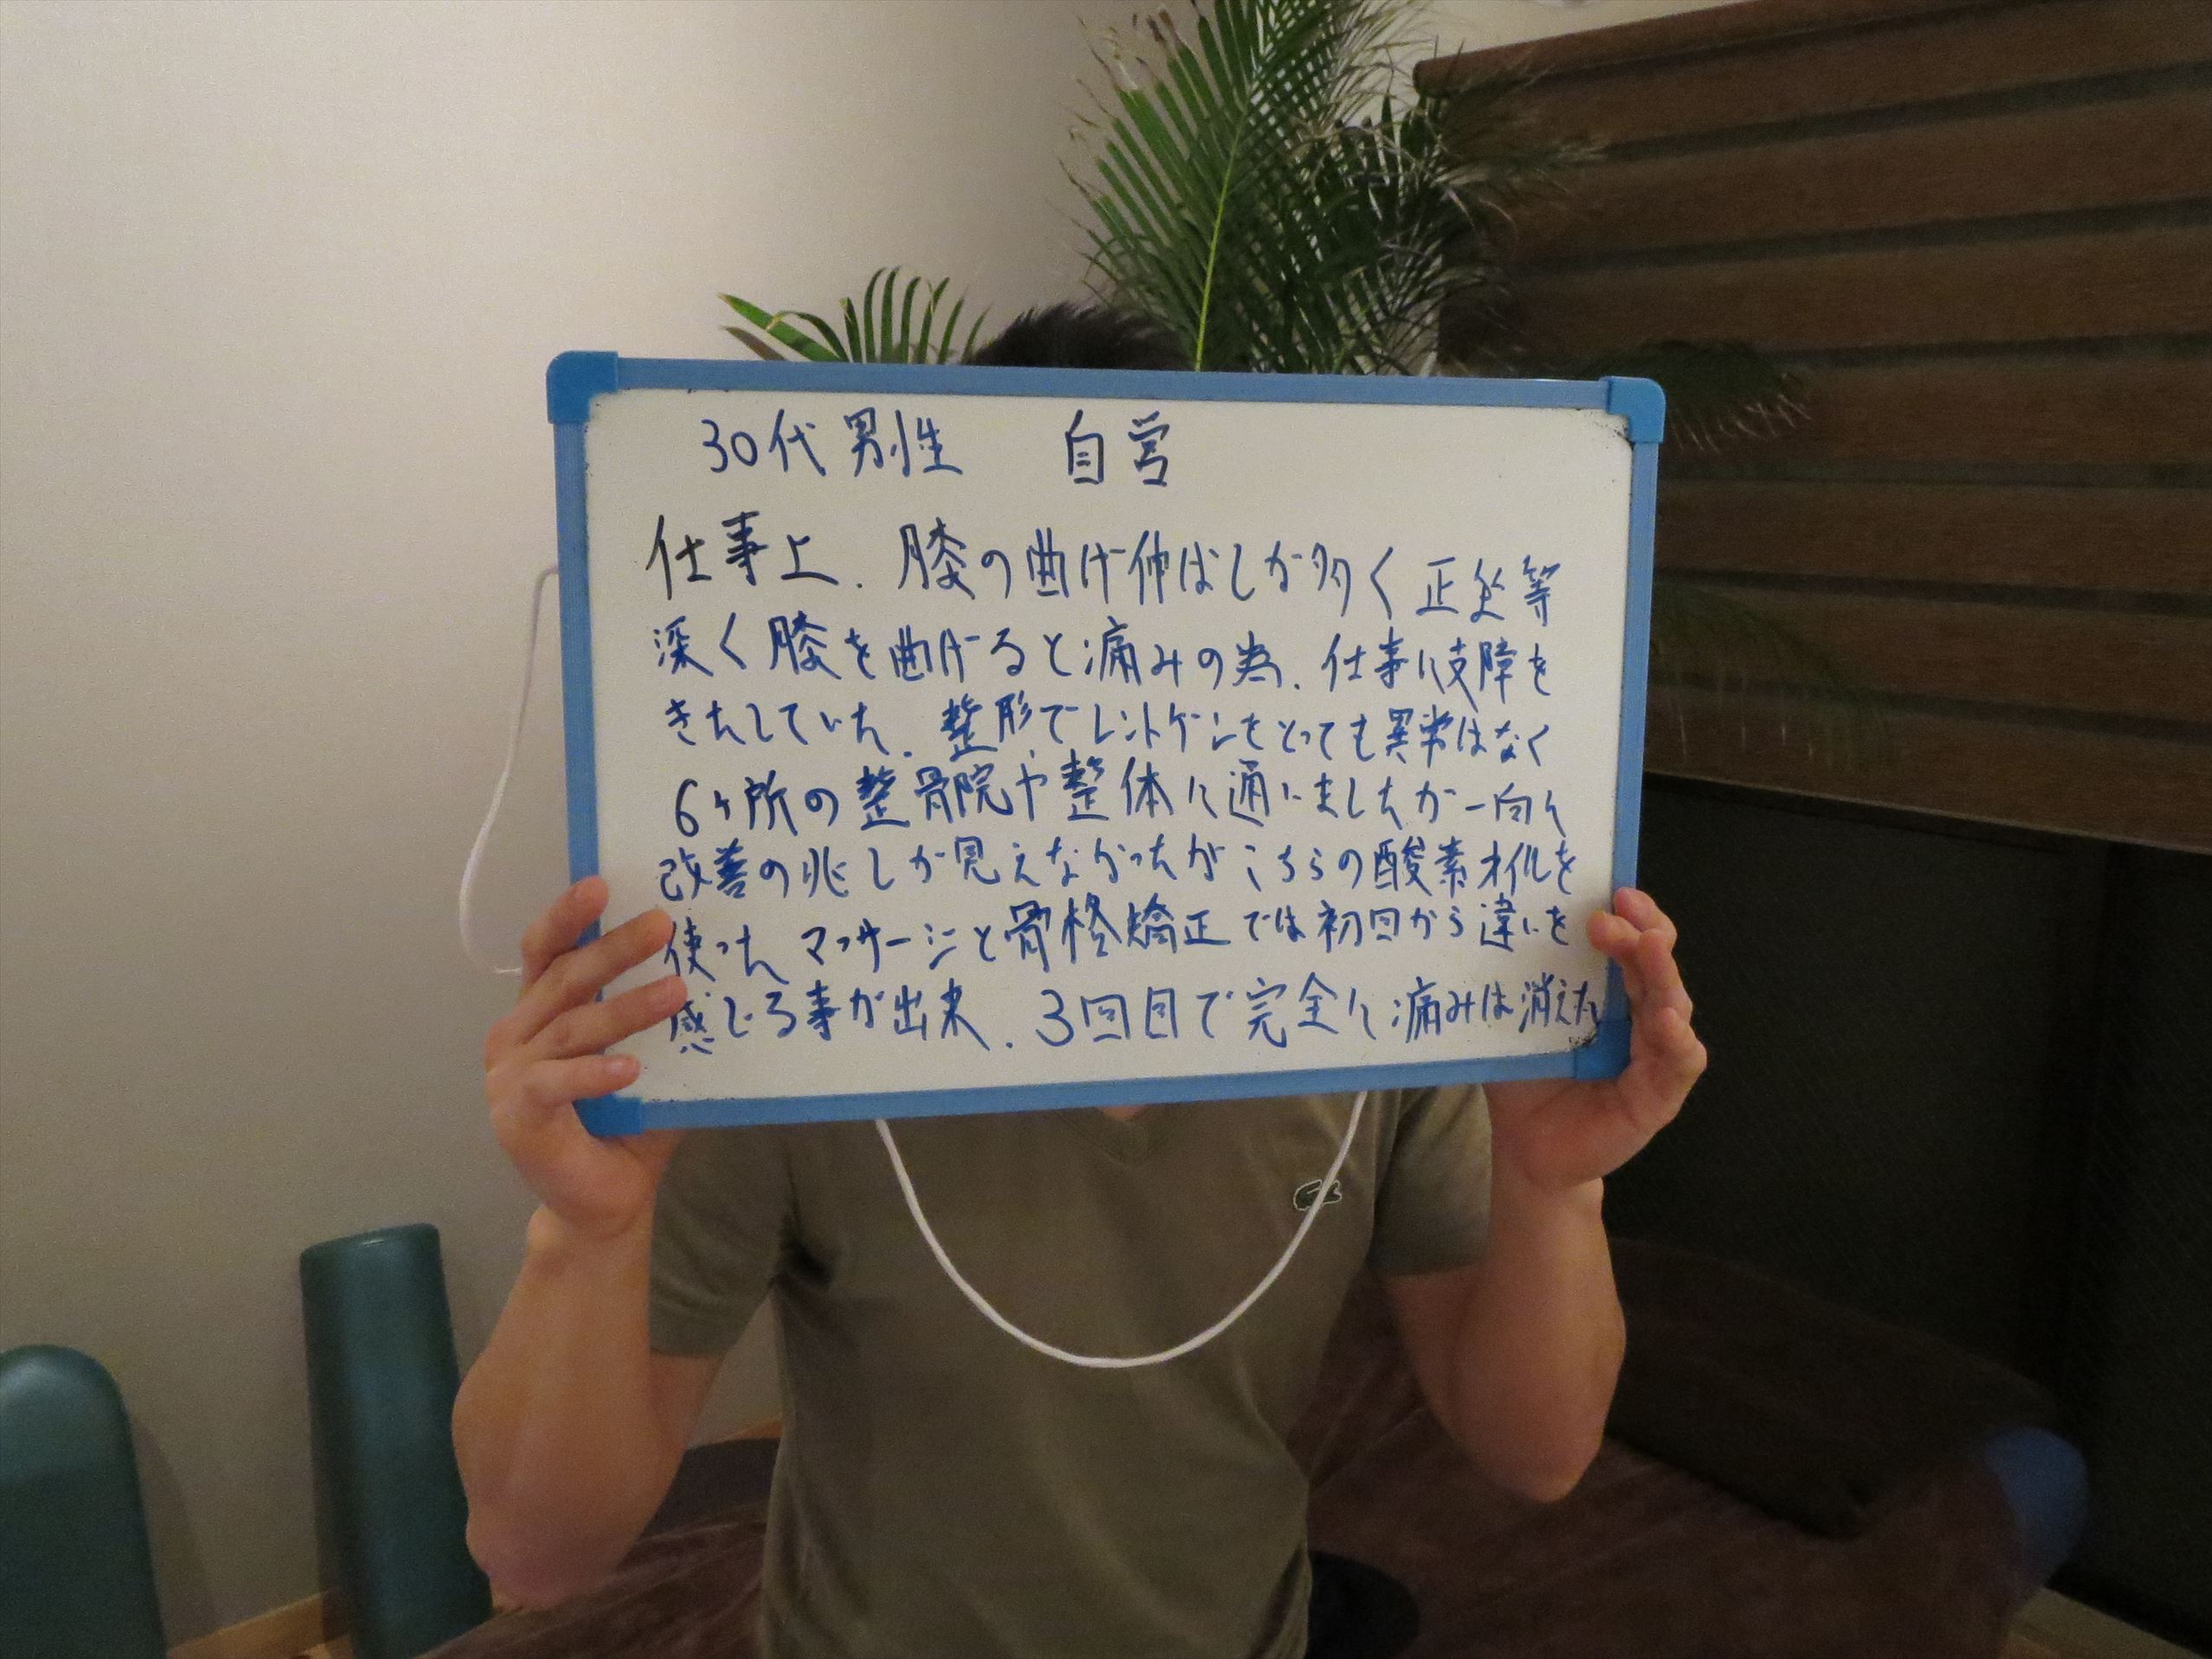 30代男性 自営
仕事上、膝の曲げ伸ばしが多く正坐等
深く膝を曲げると痛みの為、仕事に支障を
きたしていた。整形でレントゲンをとっても異常はなく
6ヶ所の整骨院や整体に通いましたが一向に
改善の兆しが見えなかったがこちらの酸素オイルを
使った マッサージと骨格矯正では初回から違いを
感じる事が出来、3回目で完全に痛みは消えた